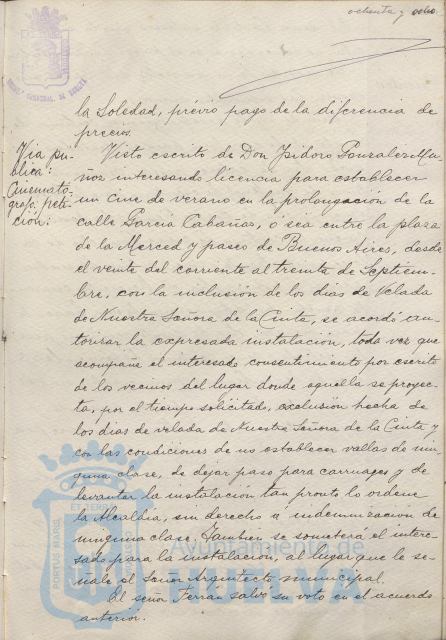 ochenta y ocho.
la Soledad, prévio pago de la diferencia de
precios.
Via pú-
blica:
Cinemató-
grafo: peti-
ción:
Visto escrito de Don Isidoro Gonzalez Mu-
ñoz interesando licencia para establecer
un cine de verano en la prolongación de la
calle Garcia Cabañas, ó sea entre la plaza
de la Merced y paseo de Buenos Aires, desde
el veinte del corriente al treinta de Septiem-
bre, con la inclusión de los dias de Velada
de Nuestra Señora de la Cinta, se acordó au-
torizar la expresada instalación, toda vez que
acompaña el interesado consentimiento por escrito
de los vecinos del lugar donde aquella se proyec-
ta, por el tiempo solicitado, exclusión hecha de
los dias de velada de Nuestra Señora de la Cinta y
con las condiciones de no establecer vallas de nin-
guna clase, de dejar paso para carruages y de
levantar la instalación tan pronto lo ordene
la Alcaldia, sin derecho á indemnización de
ninguna clase. Tambien se someterá el intere-
sado para la instalación, al lugar que le se-
ñale el Señor Arquitecto municipal.
El señor Ferrán salvó su voto en el acuerdo
anterior.
PORTUS MARIS
ET TERR
Ayuntamiento de
HUELVA